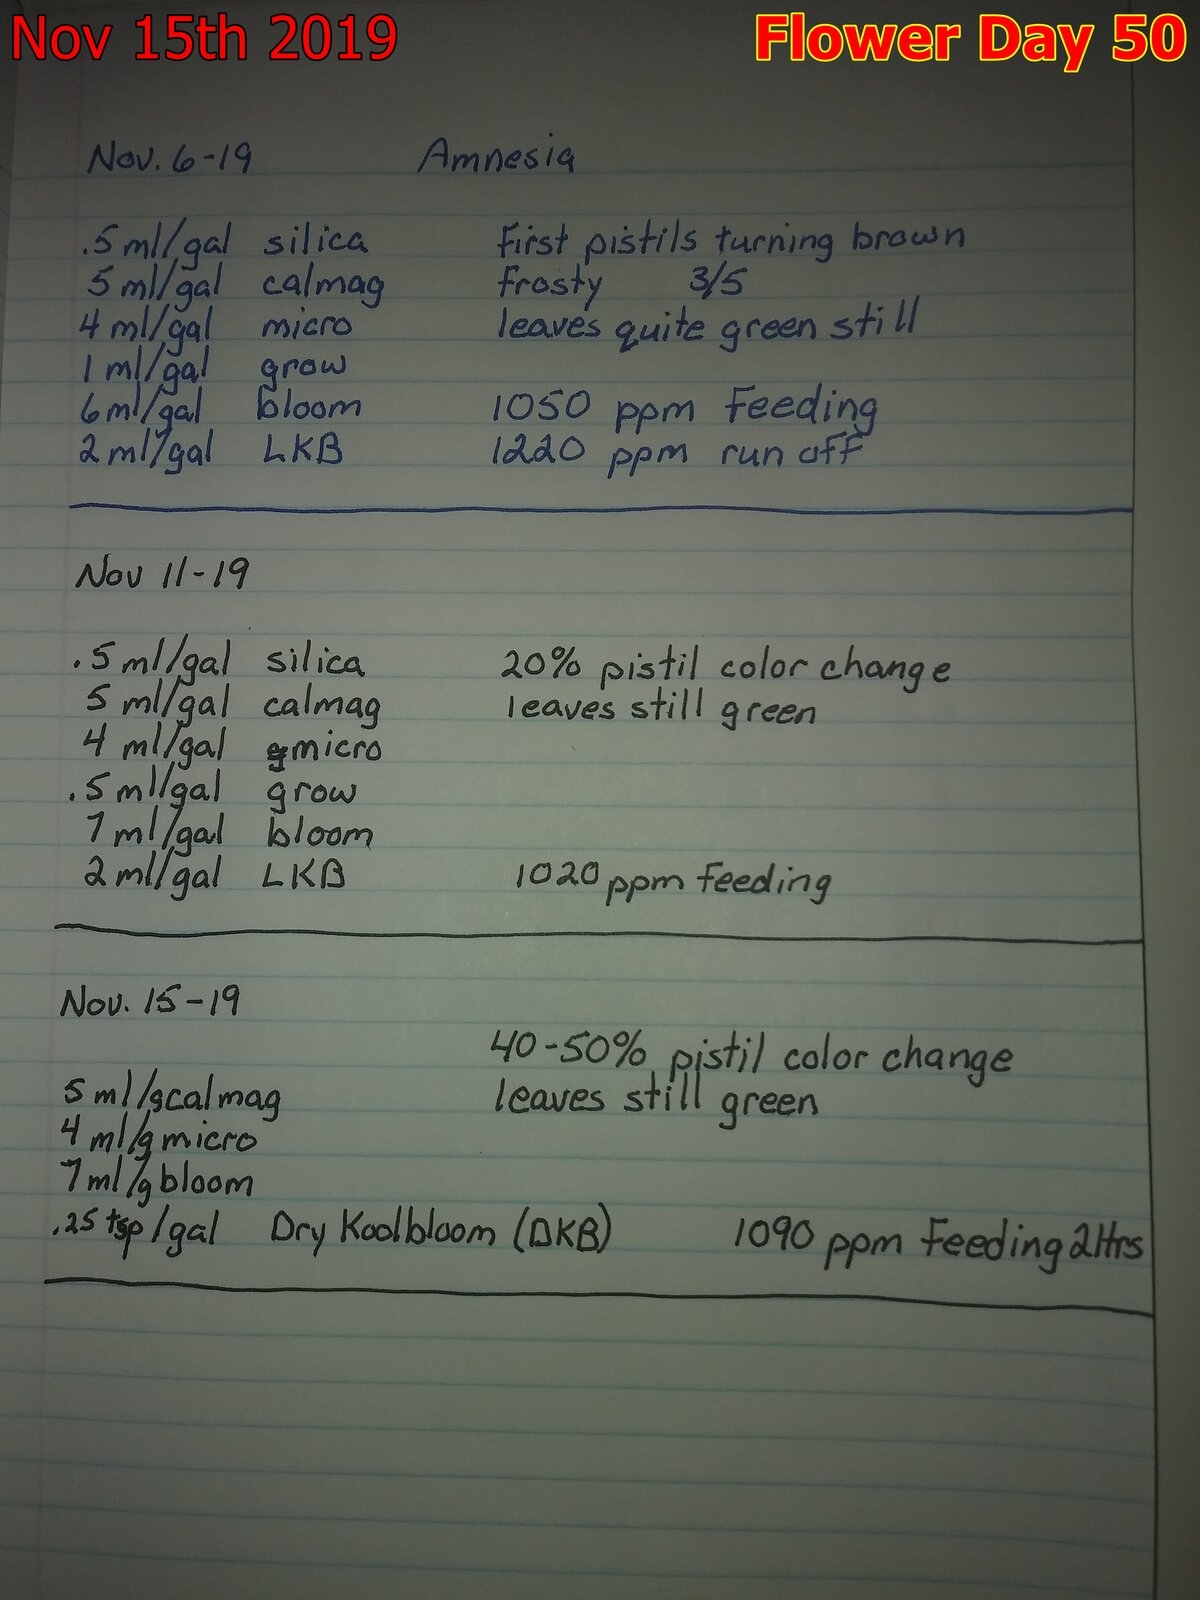 Nov 15th 2019 Flower Day 50
Nov. 6-19 Amnesia
.5 ml/gal silica First pistils turning brown
5 ml/gal calmag Frosty 3/5
4 ml/gal micro leaves quite green still
1 ml/gal grow
6 ml/gal bloom 1050 ppm Feeding
2 ml/gal LKB 1220 ppm run off
Nov 11-19
.5 ml/gal silica 20% pistil color change
5 ml/gal calmag leaves still green
4 ml/gal micro
.5 ml/gal grow
7 ml/gal bloom
2 ml/gal LKB 1020 ppm feeding
Nov. 15-19
40-50% pistil color change
5 ml/g calmag leaves still green
4 ml/g micro
7 ml/g bloom
.25 tsp/gal Dry Koolbloom (DKB) 1090 ppm Feeding 2ltrs